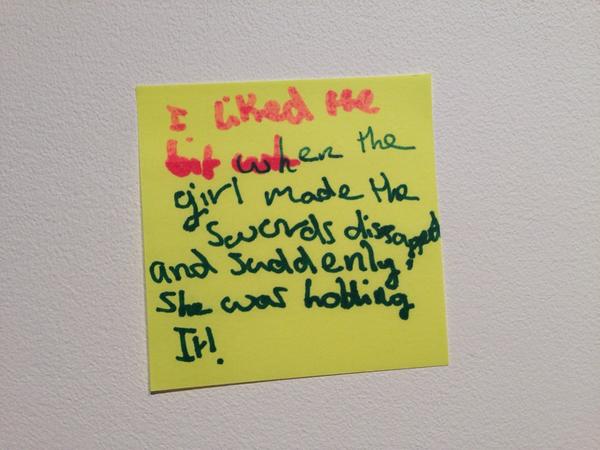 I liked the
bit when the
girl made the
swords dissapper
and suddenly
she was holding
It!